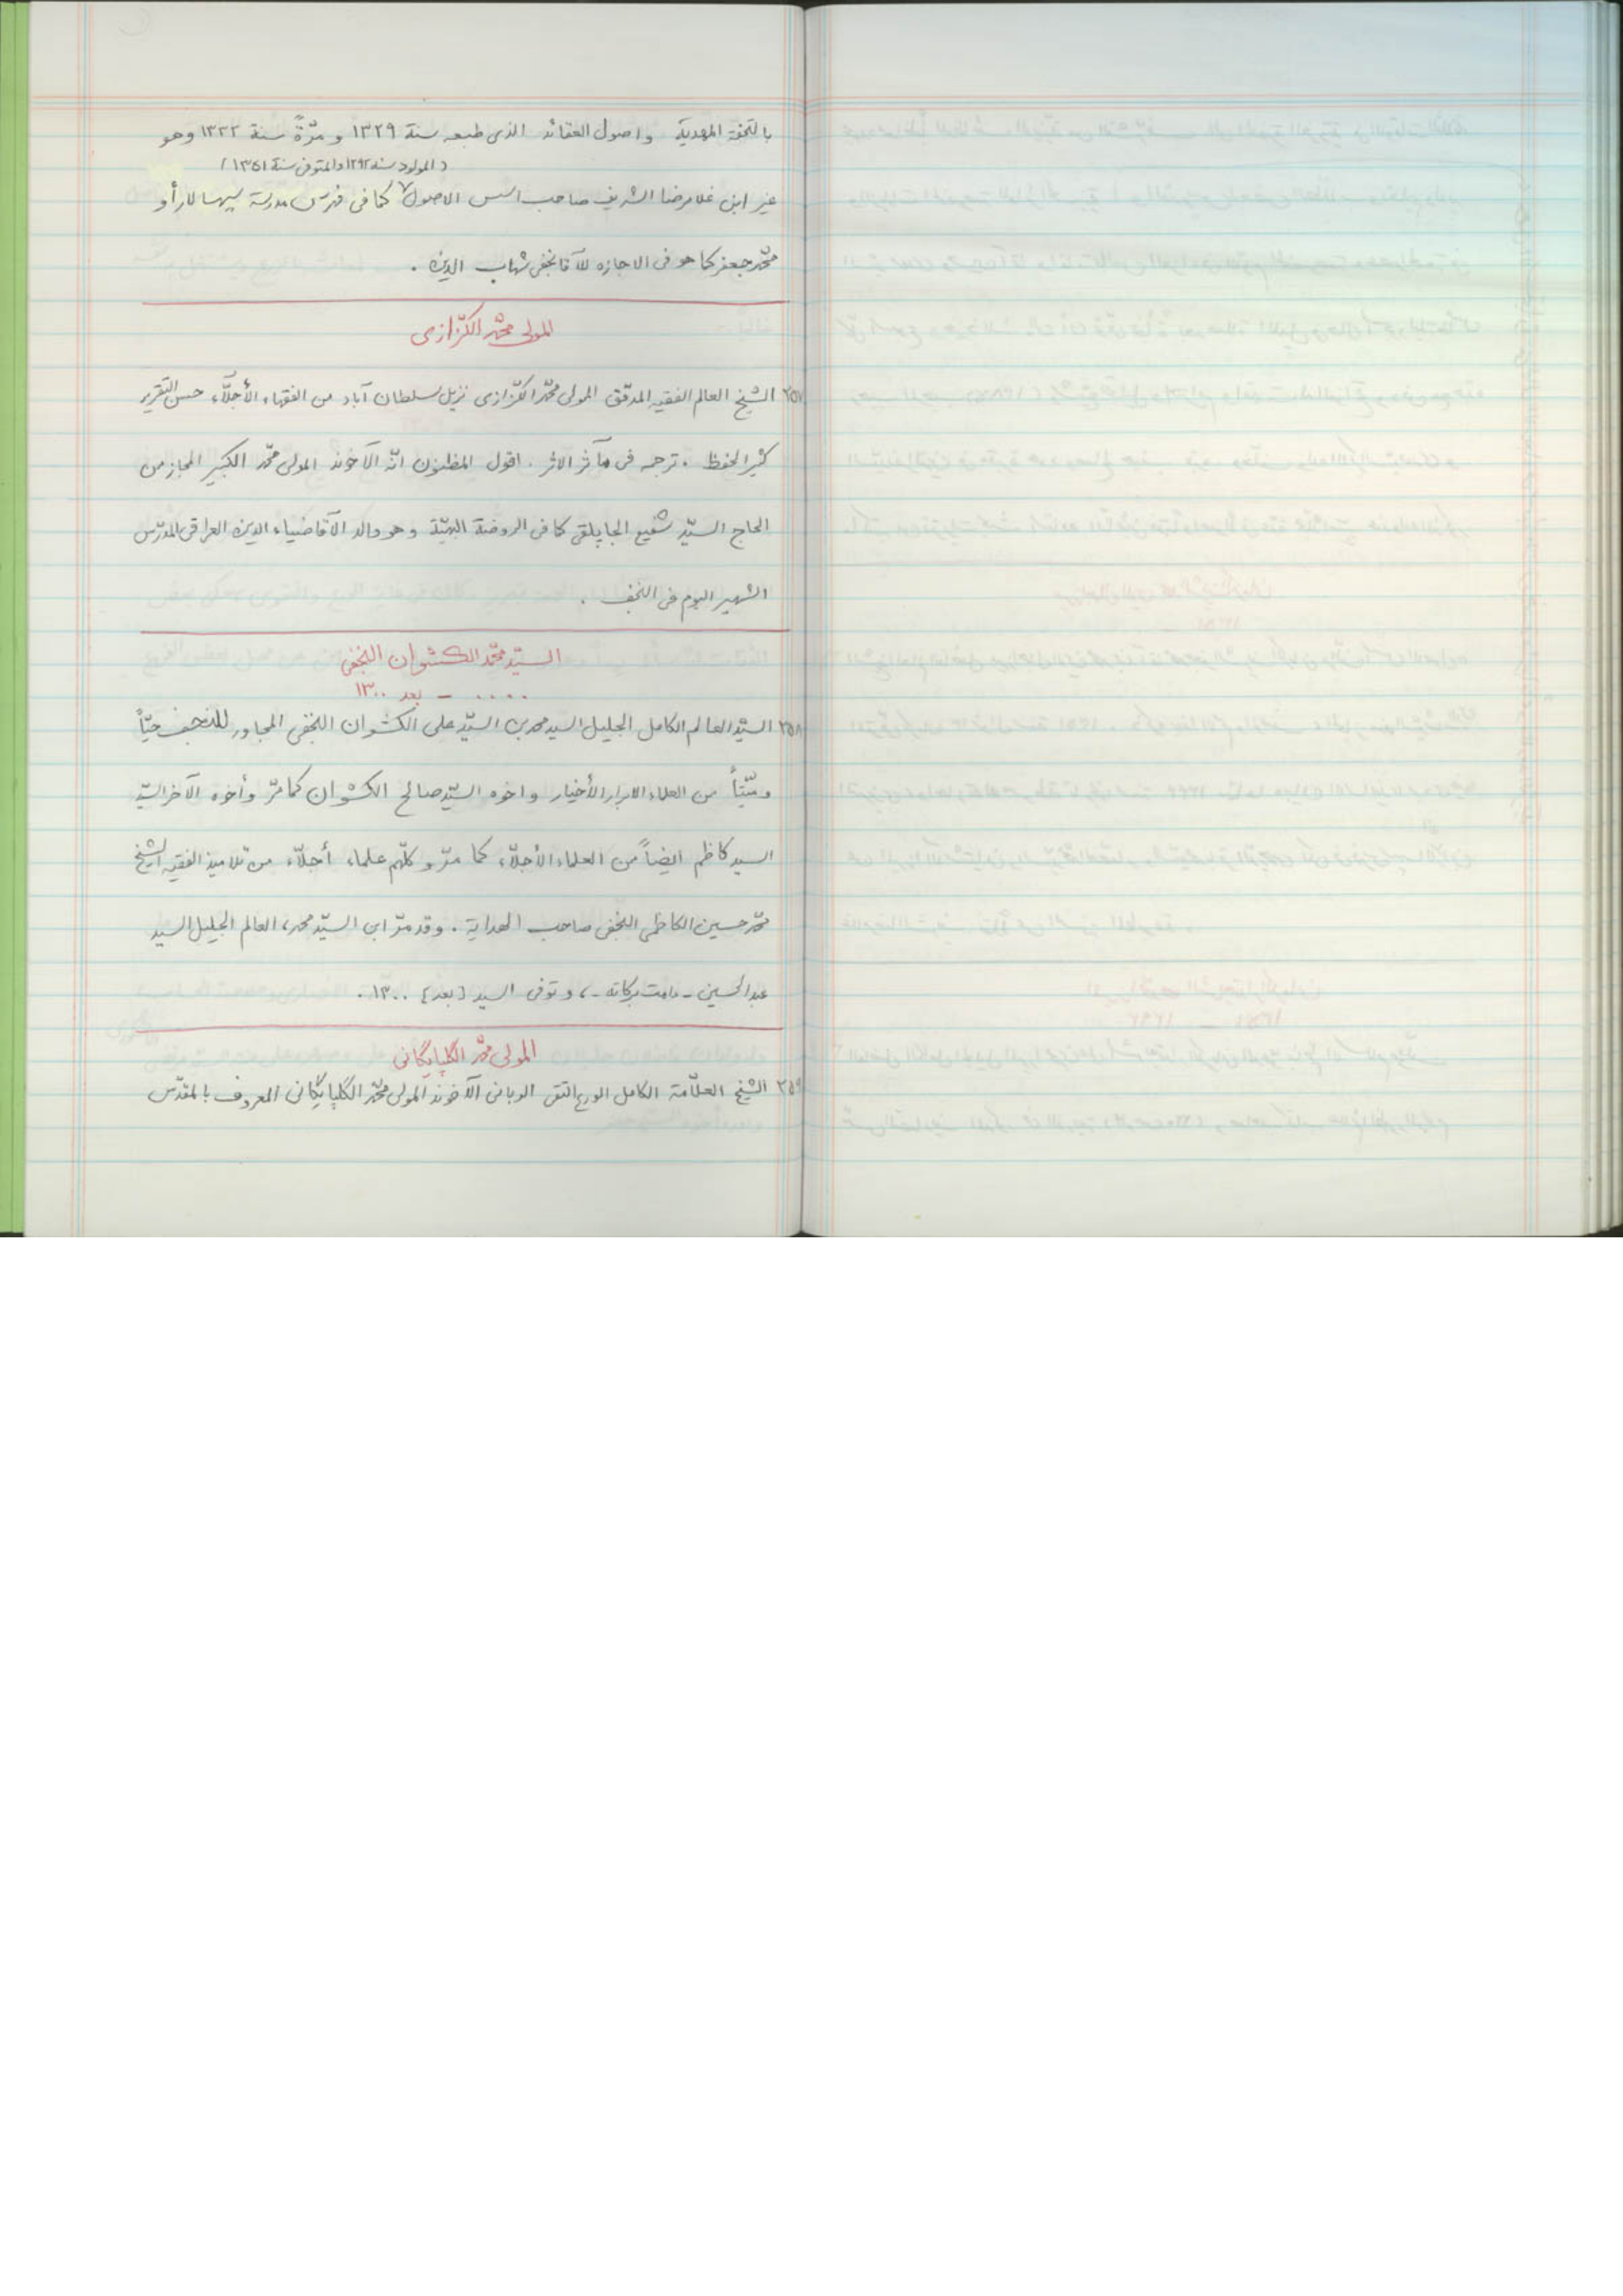 بالتحفة المهدية واصول العقائد الذی طبعه سنة ١٣٢٩ و مرّةً سنة ١٣٢٢ وهو
(المولود سنة ١٢٩٢ والمتوفى سنة ١٣٥١)
غير ابن غلامرضا الشريف صاحب اسس الاصول كما فی فهرس مدرسة سپهسالار أو
محمّد جعفر كما هو فی الاجازه للآقا نجفی شهاب الدين .
المولی محمّد الكزّازی
٢٥٧ الشيخ العالم الفقيه المدقّق المولی محمّد الكزّازی نزيل سلطان آباد من الفقهاء الأجلّاء حسن التقرير
كثير الحفظ . ترجمه فی مآثر الاثر . اقول المظنون انّه الآخوند المولی محمّد الكبير المجاز من
الحاج السيّد شفيع الجاپلقی كما فی الروضة البهيّة وهو والد الآقا ضياء الدين العراقی المدرّس
الشهير اليوم فی النجف .
السيّد محمّد الكشوان النجفی
.... - بعد ١٣٠٠
٢٥٨ السيّد العالم الكامل الجليل السيد محمد بن السيّد علی الكشوان النجفی المجاور للنجف حيّاً
وميّتاً من العلماء الابرار الأخيار واخوه السيّد صالح الكشوان كما مرّ وأخوه الآخر السيّد
السيد كاظم ايضاً من العلماء الأجلّاء كما مرّ وكلّهم علماء أجلّاء من تلاميذ الفقيه الشيخ
محمّد حسين الكاظمی النجفی صاحب الهداية . وقد مرّ ابن السيّد محمد، العالم الجليل السيد
عبد الحسين - دامت بركاته -، و توفی السيد [بعد] ١٣٠٠ .
المولی محمّد الگلپايگانی
٢٥٩ الشيخ العلّامة الكامل الورع التقی الربانی الآخوند المولی محمّد الگلپايگانی المعروف بالمقدّس